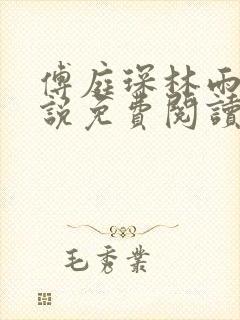 傅庭琛林雨
說免費閱讀
毛秀業